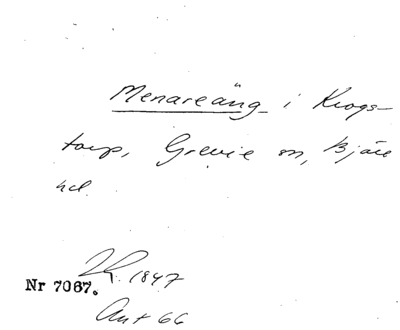 Menareäng i Krogs-
torp, Grevie sn, Bjäre
hd.
1847
Nr 7067.
Ant 66